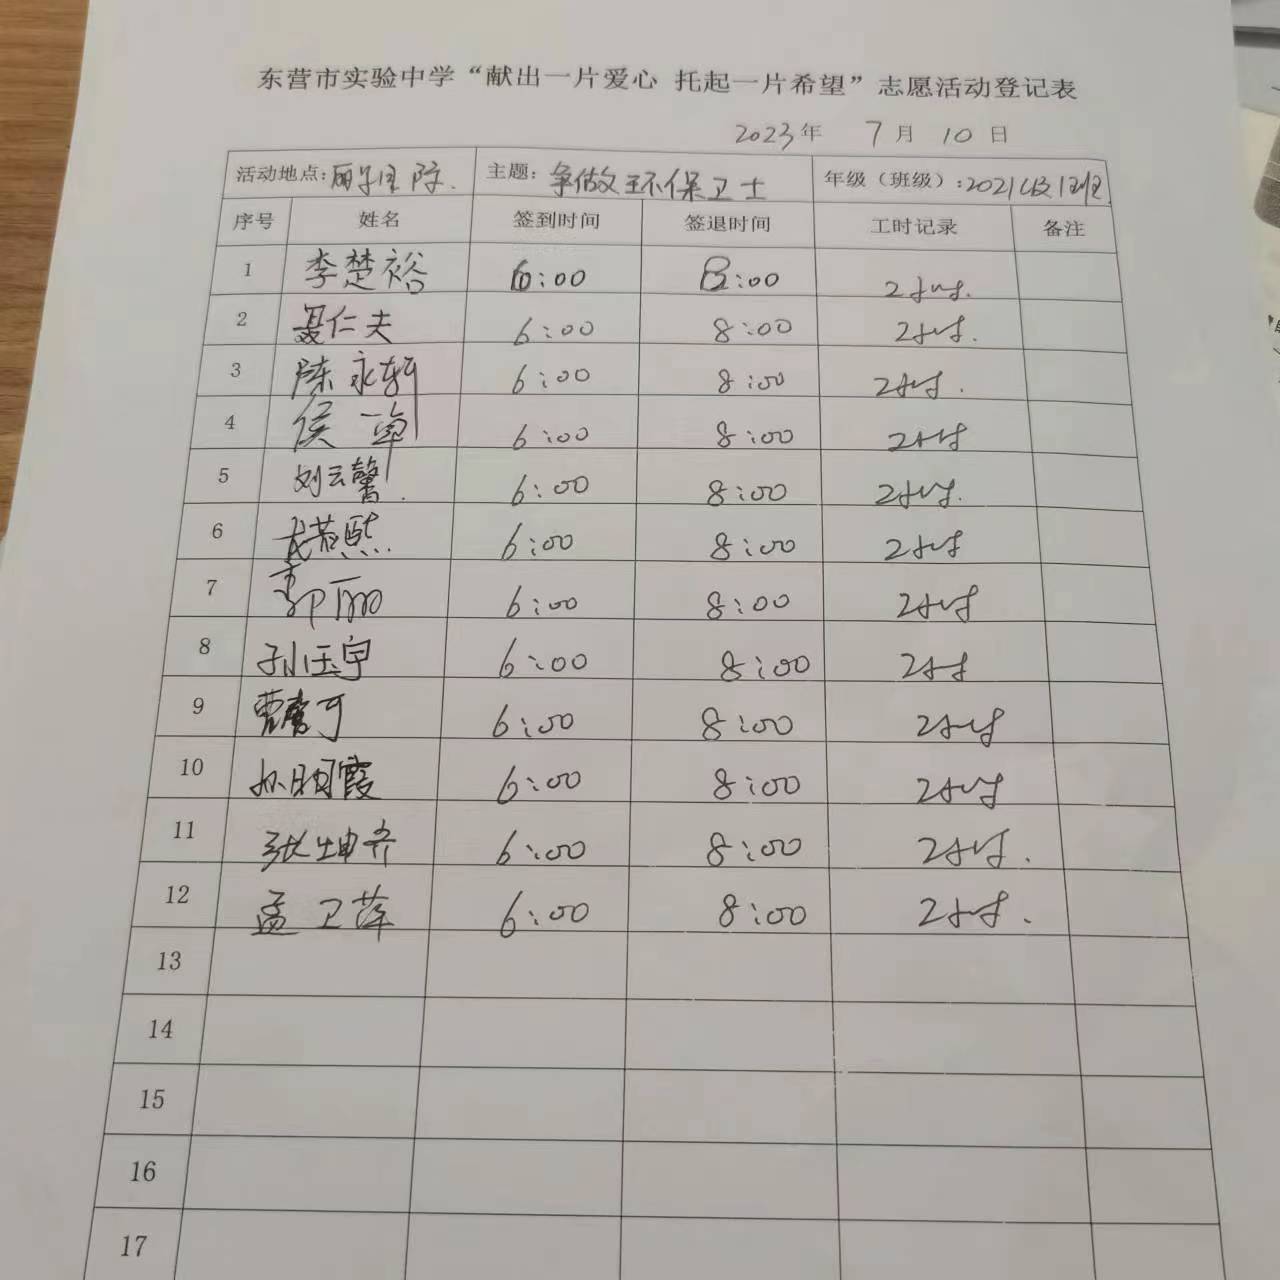 东营市实验中学“献出一片爱心 托起一片希望”志愿活动登记表
2023年 7月 10日
活动地点: 国际. 主题: 争做环保卫士 年级（班级）: 2021级1班
序号 姓名 签到时间 签退时间 工时记录 备注
1 李楚裕 6:00 8:00 2小时.
2 聂仁夫 6:00 8:00 2小时.
3 陈永轩 6:00 8:00 2小时.
4 侯一卓 6:00 8:00 2小时
5 刘云馨. 6:00 8:00 2小时.
6 6:00 8:00 2小时
7 郭丽 6:00 8:00 2小时
8 孙钰宇 6:00 8:00 2小时
9 6:00 8:00 2小时
10 孙明霞 6:00 8:00 2小时
11 张坤齐 6:00 8:00 2小时.
12 孟卫萍 6:00 8:00 2小时.
13
14
15
16
17